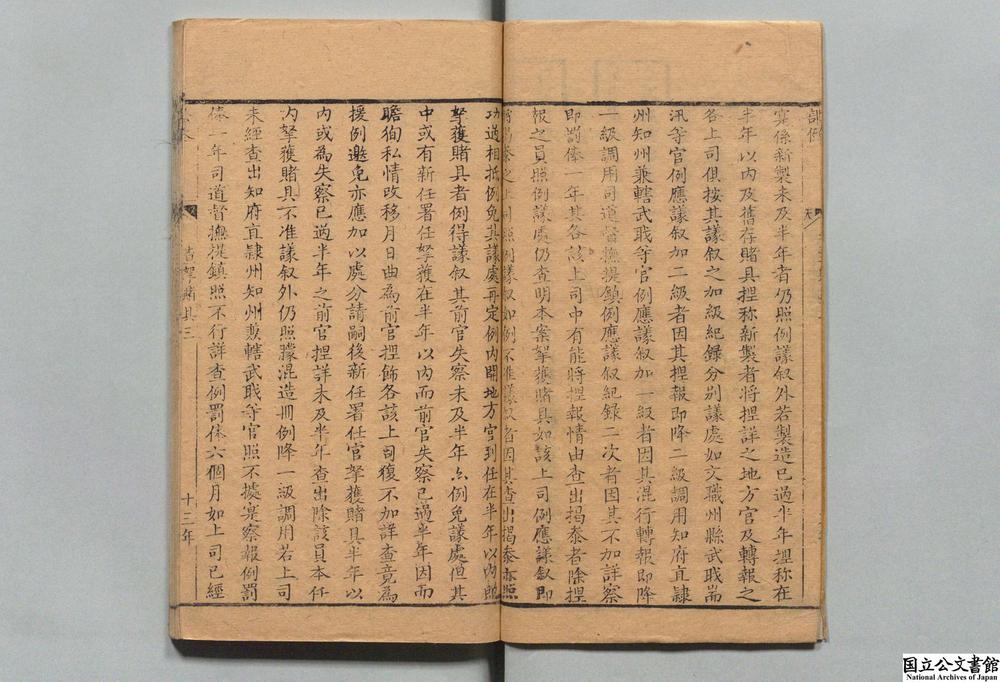 寔係新製未及半年者仍照例議叙外若製造已過半年捏称在
半年以内及舊存賭具捏称新製者将捏詳之地方官及轉報之
各上司俱按其議叙之加級紀録分别議處如文職州縣武職耑
汛等官例應議叙加二級者因其捏報即降二級調用知府直隷
州知州兼轄武職等官例應議叙加一級者因其混行轉報即降
一級調用司道督撫提鎮例應議叙紀録二次者因其不加詳察
即罰俸一年其各該上司中有能將捏報情由查出揭叅者除捏
報之員照例議處仍查明本案拏獲賭具如該上司例應議叙即
照例議叙如例不准議叙者因其查出揭叅亦照
功過相抵例免其議處再定例内開地方官到任在半年以内能
拏獲賭具者例得議叙其前官失察未及半年亦例免議處但其
中或有新任署任拏獲在半年以内而前官失察已過半年因而
瞻狥私情改移月日曲為前官捏飾各該上司復不加詳查竟為
援例邀免亦應加以處分請嗣後新任署任官拏獲賭具半年以
内或為失察已過半年之前官捏詳未及半年查出除該員本任
内拏獲賭具不准議叙外仍照朦混造冊例降一級調用若上司
未經查出知府直隷州知州兼轄武職等官照不據寔察報例罰
俸一年司道督撫提鎮照不行詳查例罰俸六個月如上司已經
查拏賭具三
十三年